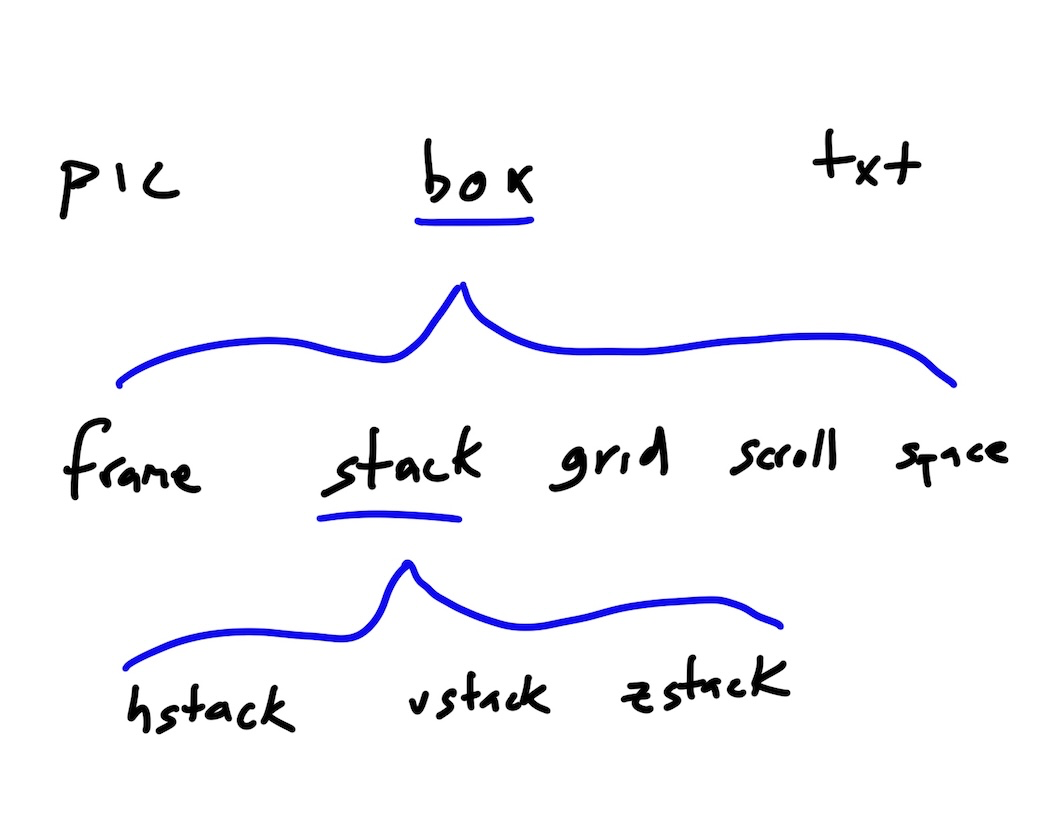 pic box txt
frame stack grid scroll space
hstack vstack zstack